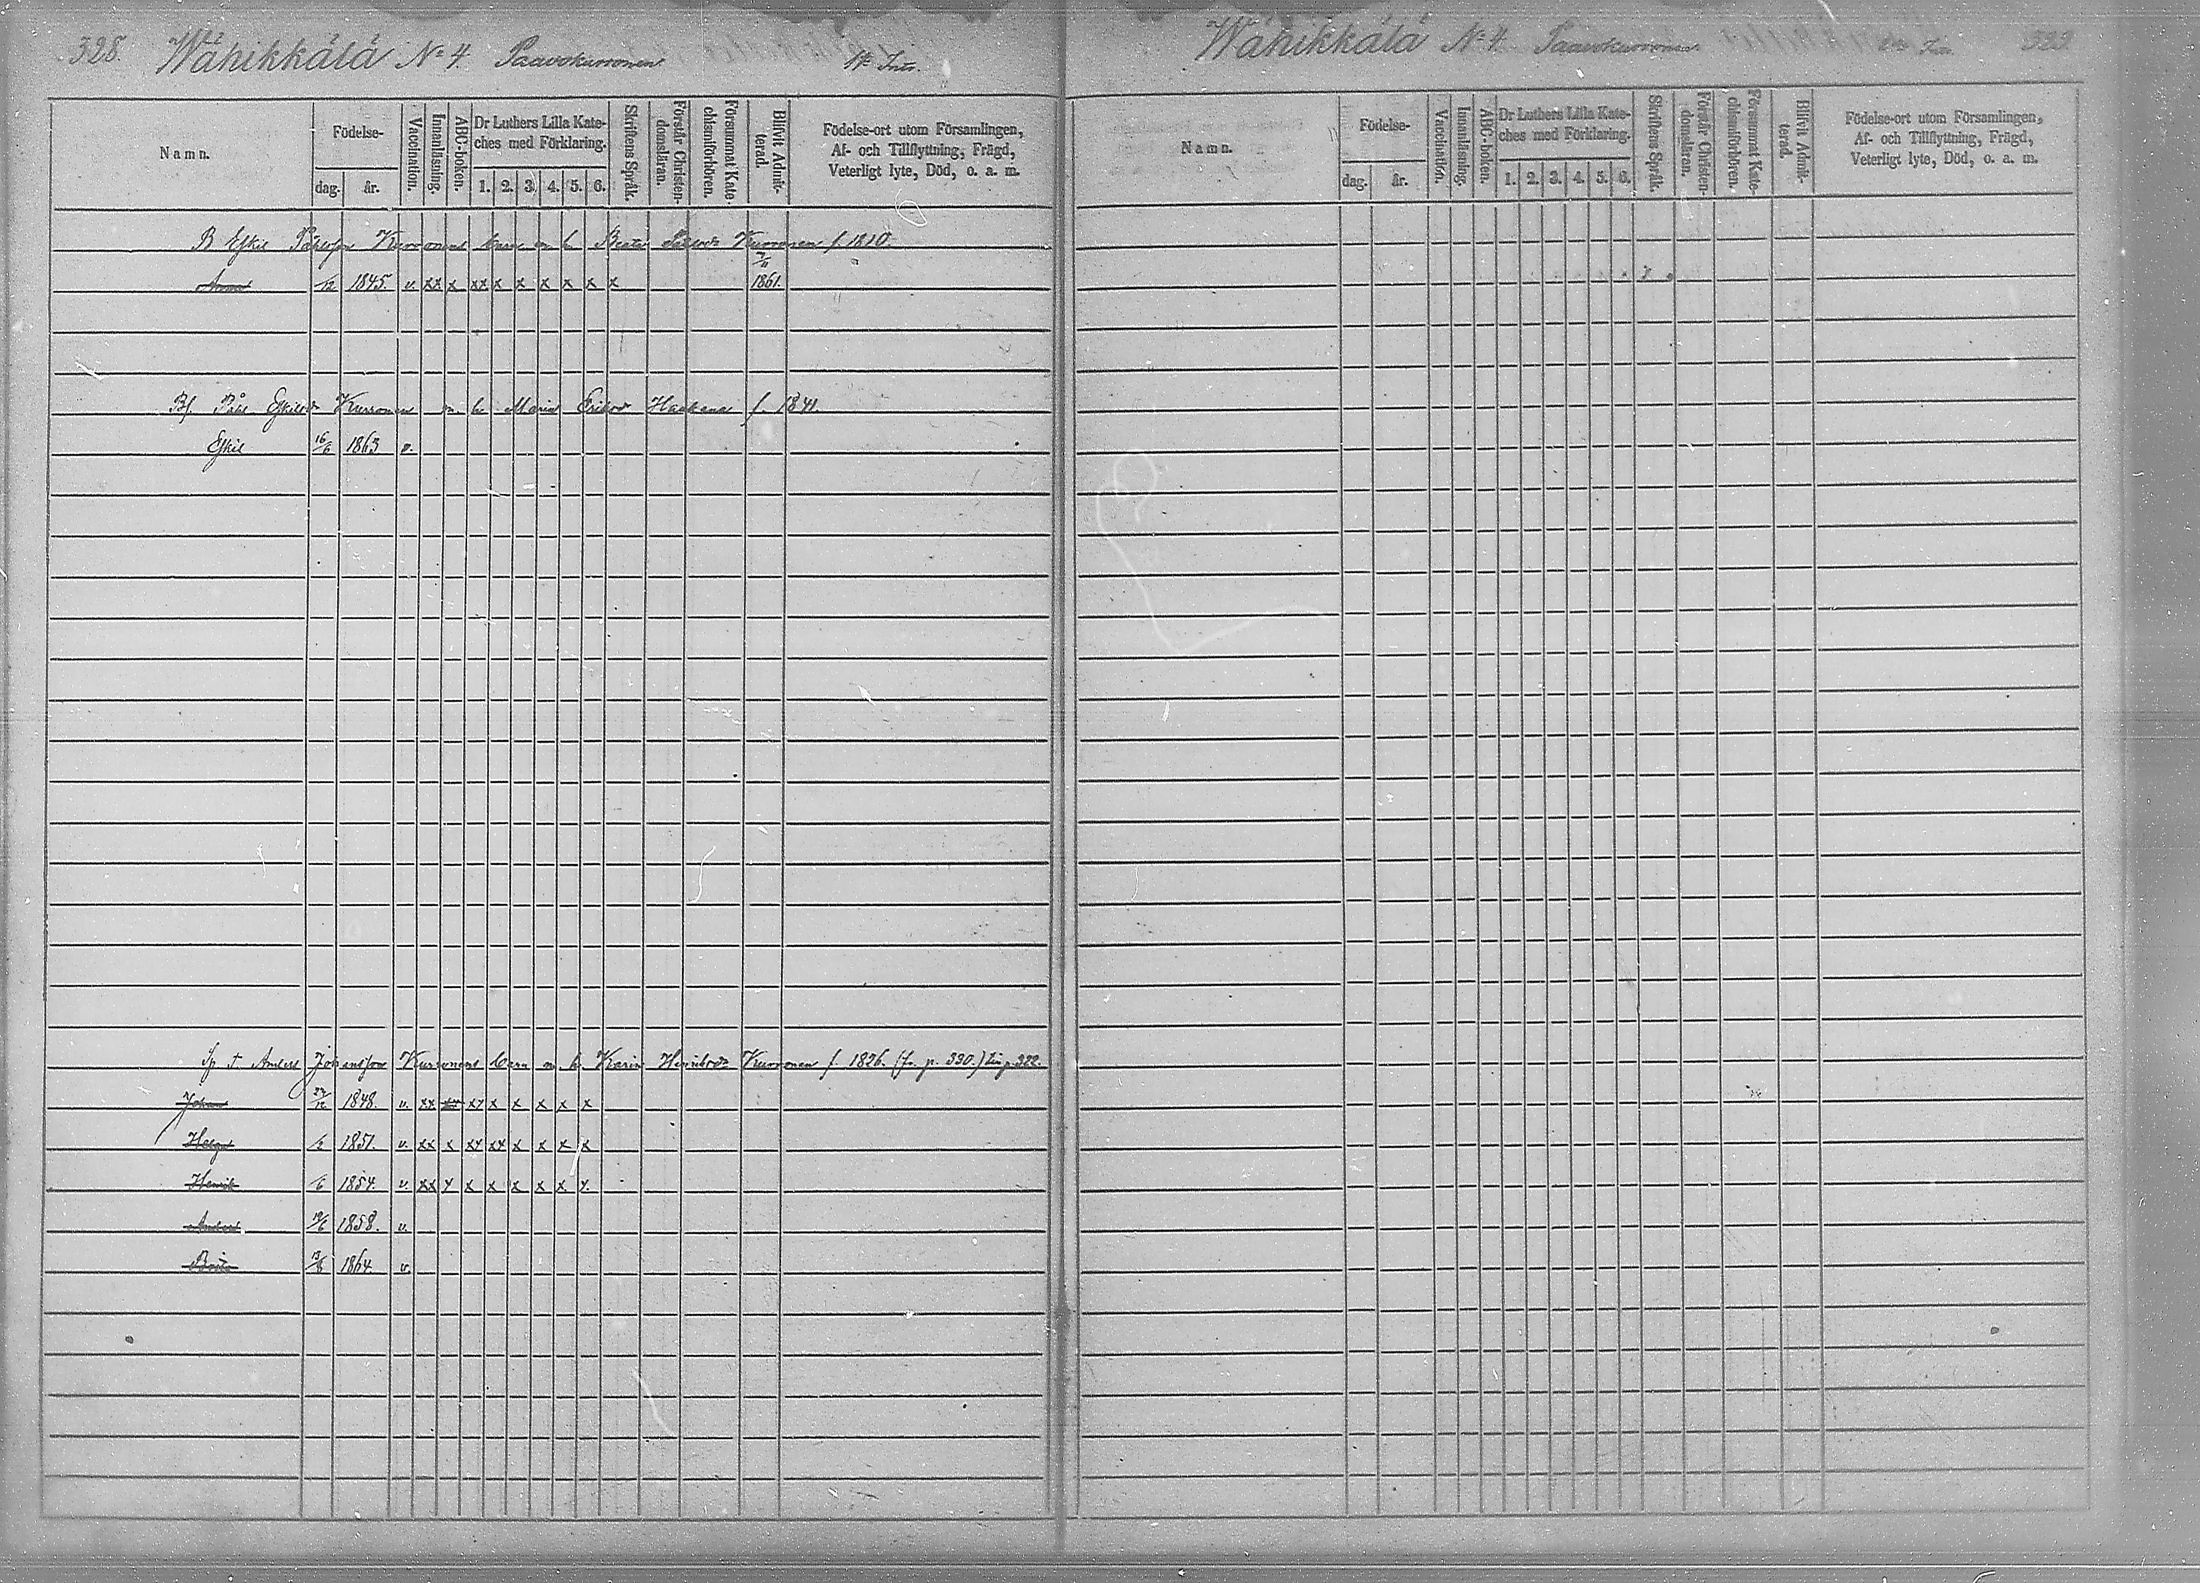 328. Wähikkälä No 4. Paavokurronen
Namn.
Födelse-
dag. år.
Vaccination.
Innanläsning.
ABC-boken.
Dr Luthers Lilla Kate-
ches med Förklaring.
1. 2. 3. 4. 5. 6.
Skriftens Språk.
Förstår Christen-
domsläran.
Försummat Kate-
chismiförhören.
Blifvit Admit-
terad.
Födelse-ort utom Församlingen,
Af- och Tillflyttning, Frägd,
Veterligt lyte, Död, o. a. m.
B Eskil Kurronens barn m. h. Kurronen f. 1810.
Anna 1845. v. xx x xx x x x x x x 7/11 1861.
Bf. Påhl Kurronen m. h. Maria f. 1841.
Eskil 16/6 1863 v.
Anders Johansson Kurronens barn m. h. Karin Kurronen f. 1826. (fr. p. 330.) p. 322.
Johan 27/12 1848. v. xx xx x x x x x
Helga 1851. v. xx x xx xx x x x x
Henrik 1854. v. xx x x x x x x x.
Anders 1858. v.
Brita 1864. v.
Wähikkälä No 4. Paavokurronen 323.
Namn.
Födelse-
dag. år.
Vaccination.
Innanläsning.
ABC-boken.
Dr Luthers Lilla Kate-
ches med Förklaring.
1. 2. 3. 4. 5. 6.
Skriftens Språk.
Förstår Christen-
domsläran.
Försummat Kate-
chismiförhören.
Blifvit Admit-
terad.
Födelse-ort utom Församlingen,
Af- och Tillflyttning, Frägd,
Veterligt lyte, Död, o. a. m.